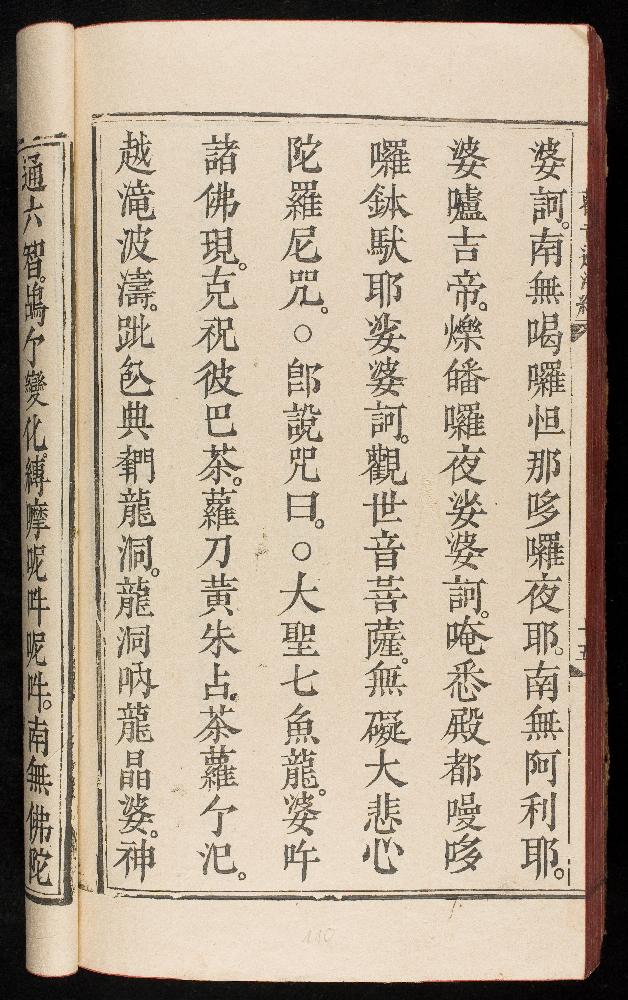 婆訶。南無喝囉怛那哆囉夜耶。南無阿利耶。
婆嚧吉帝。爍皤囉夜娑婆訶。唵悉殿都嘧哆
囉鉢馱耶娑婆訶。觀世音菩薩。無礙大悲心
陀羅尼咒。○郎說咒曰。○大聖七魚龍。婆吘
諸佛現。克祝彼巴茶。蘿刀黃朱占。茶蘿𠆳汜。
越滝波濤。跐包典龍洞。龍洞吶龍晶婆。神
通六智。鴣𠆳變化。縛摩呢吽呢吽。南無佛陀